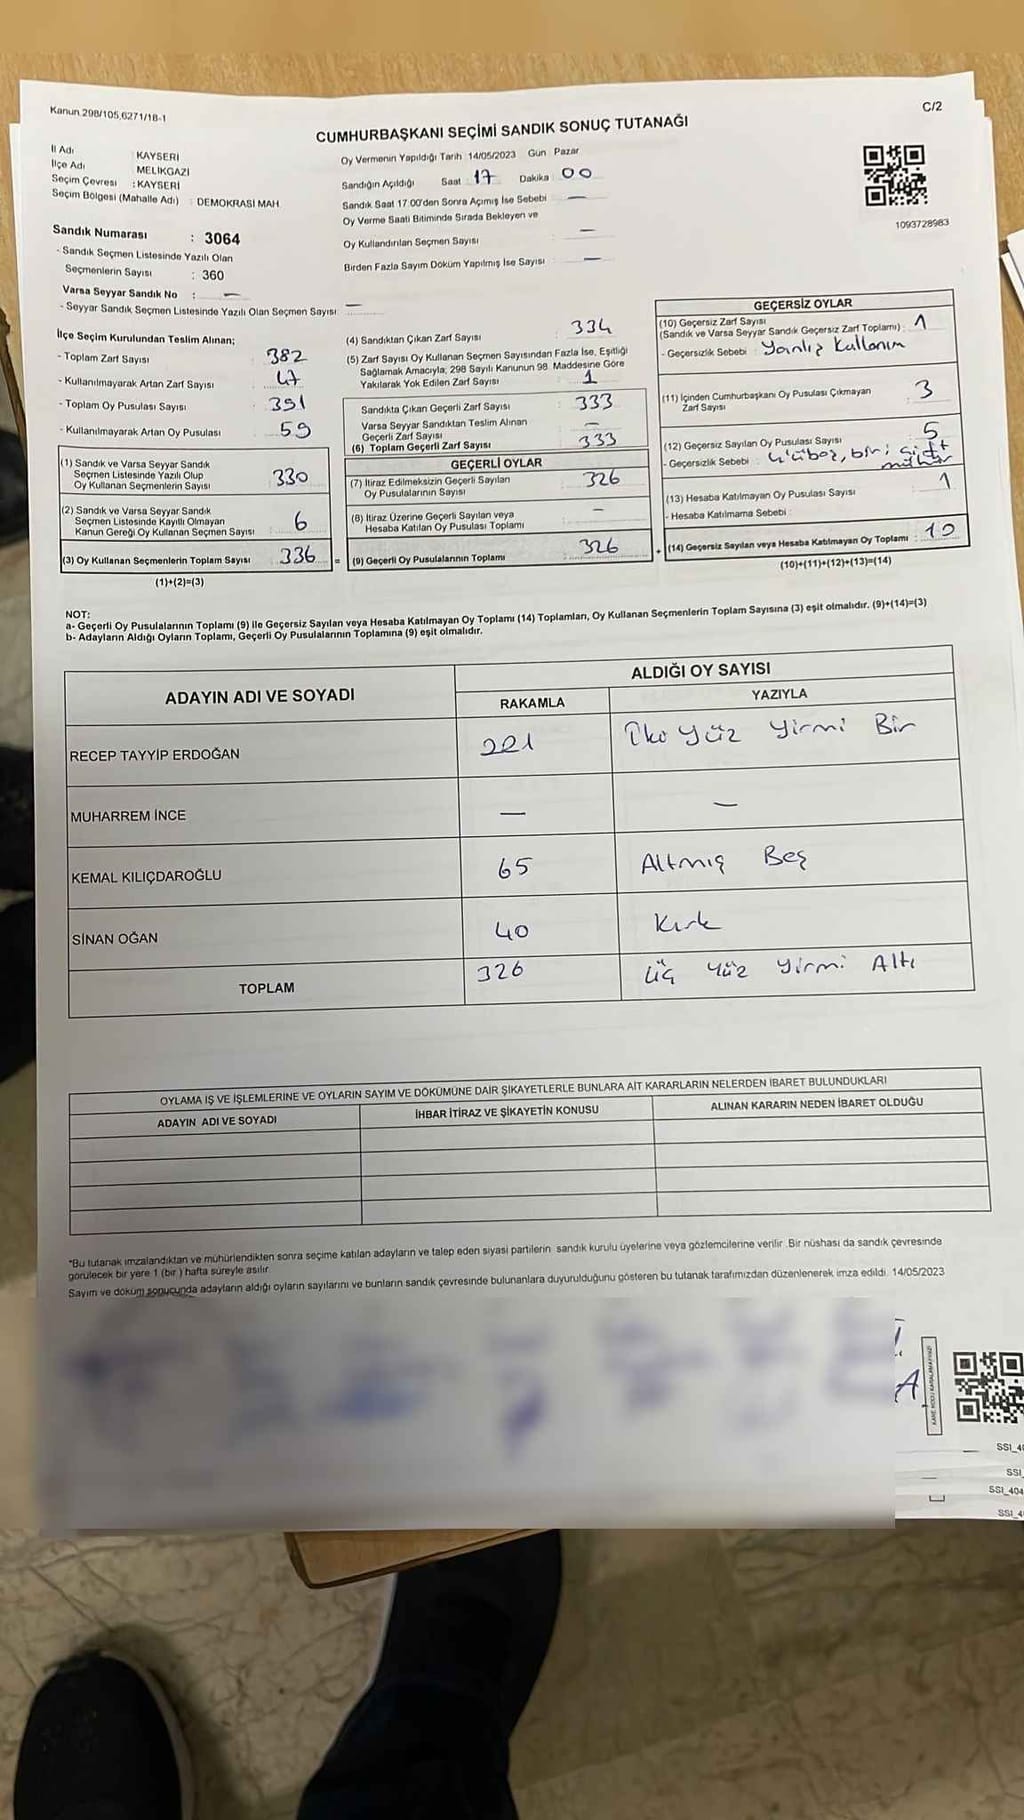 Kanun 298/105,6271/18-1
C/2
CUMHURBAŞKANI SEÇİMİ SANDIK SONUÇ TUTANAĞI
İl Adı KAYSERİ
İlçe Adı MELİKGAZİ
Seçim Çevresi : KAYSERİ
Seçim Bölgesi (Mahalle Adı) : DEMOKRASİ MAH
Oy Vermenin Yapıldığı Tarih 14/05/2023 Gün Pazar
Sandığın Açıldığı Saat : 17 Dakika : 00
Sandık Saat 17.00'den Sonra Açılmış İse Sebebi : —
Oy Verme Saati Bitiminde Sırada Bekleyen ve
Oy Kullandırılan Seçmen Sayısı : —
Birden Fazla Sayım Döküm Yapılmış İse Sayısı : —
1093728983
Sandık Numarası : 3064
- Sandık Seçmen Listesinde Yazılı Olan
Seçmenlerin Sayısı : 360
Varsa Seyyar Sandık No : —
- Seyyar Sandık Seçmen Listesinde Yazılı Olan Seçmen Sayısı : —
İlçe Seçim Kurulundan Teslim Alınan;
- Toplam Zarf Sayısı : 382
- Kullanılmayarak Artan Zarf Sayısı : 47
- Toplam Oy Pusulası Sayısı : 391
- Kullanılmayarak Artan Oy Pusulası : 59
(1) Sandık ve Varsa Seyyar Sandık
Seçmen Listesinde Yazılı Olup
Oy Kullanan Seçmenlerin Sayısı : 330
(2) Sandık ve Varsa Seyyar Sandık
Seçmen Listesinde Kayıtlı Olmayan
Kanun Gereği Oy Kullanan Seçmen Sayısı : 6
(3) Oy Kullanan Seçmenlerin Toplam Sayısı : 336
(1)+(2)=(3)
(4) Sandıktan Çıkan Zarf Sayısı : 334
(5) Zarf Sayısı Oy Kullanan Seçmen Sayısından Fazla İse, Eşitliği
Sağlamak Amacıyla, 298 Sayılı Kanunun 98. Maddesine Göre
Yakılarak Yok Edilen Zarf Sayısı : 1
Sandıkta Çıkan Geçerli Zarf Sayısı : 333
Varsa Seyyar Sandıktan Teslim Alınan
Geçerli Zarf Sayısı : —
(6) Toplam Geçerli Zarf Sayısı : 333
GEÇERLİ OYLAR
(7) İtiraz Edilmeksizin Geçerli Sayılan
Oy Pusulalarının Sayısı : 326
(8) İtiraz Üzerine Geçerli Sayılan veya
Hesaba Katılan Oy Pusulası Toplamı : —
= (9) Geçerli Oy Pusulalarının Toplamı : 326
GEÇERSİZ OYLAR
(10) Geçersiz Zarf Sayısı
(Sandık ve Varsa Seyyar Sandık Geçersiz Zarf Toplamı) : 1
- Geçersizlik Sebebi : Yanlış Kullanım
(11) İçinden Cumhurbaşkanı Oy Pusulası Çıkmayan
Zarf Sayısı : 3
(12) Geçersiz Sayılan Oy Pusulası Sayısı : 5
- Geçersizlik Sebebi : 4'ü boş, biri çift
mühür
(13) Hesaba Katılmayan Oy Pusulası Sayısı : 1
- Hesaba Katılmama Sebebi :
+ (14) Geçersiz Sayılan veya Hesaba Katılmayan Oy Toplamı : 10
(10)+(11)+(12)+(13)=(14)
NOT:
a- Geçerli Oy Pusulalarının Toplamı (9) ile Geçersiz Sayılan veya Hesaba Katılmayan Oy Toplamı (14) Toplamları, Oy Kullanan Seçmenlerin Toplam Sayısına (3) eşit olmalıdır. (9)+(14)=(3)
b- Adayların Aldığı Oyların Toplamı, Geçerli Oy Pusulalarının Toplamına (9) eşit olmalıdır.
ADAYIN ADI VE SOYADI ALDIĞI OY SAYISI
RAKAMLA YAZIYLA
RECEP TAYYİP ERDOĞAN 221 İki yüz Yirmi Bir
MUHARREM İNCE — —
KEMAL KILIÇDAROĞLU 65 Altmış Beş
SİNAN OĞAN 40 Kırk
TOPLAM 326 Üç Yüz Yirmi Altı
OYLAMA İŞ VE İŞLEMLERİNE VE OYLARIN SAYIM VE DÖKÜMÜNE DAİR ŞİKAYETLERLE BUNLARA AİT KARARLARIN NELERDEN İBARET BULUNDUKLARI
ADAYIN ADI VE SOYADI İHBAR İTİRAZ VE ŞİKAYETİN KONUSU ALINAN KARARIN NEDEN İBARET OLDUĞU
*Bu tutanak imzalandıktan ve mühürlendikten sonra seçime katılan adayların ve talep eden siyasi partilerin sandık kurulu üyelerine veya gözlemcilerine verilir .Bir nüshası da sandık çevresinde
görülecek bir yere 1 (bir ) hafta süreyle asılır.
Sayım ve döküm sonucunda adayların aldığı oyların sayılarını ve bunların sandık çevresinde bulunanlara duyurulduğunu gösteren bu tutanak tarafımızdan düzenlenerek imza edildi. 14/05/2023
A
SSI_40
SSI_
SSI_404
SSI_4